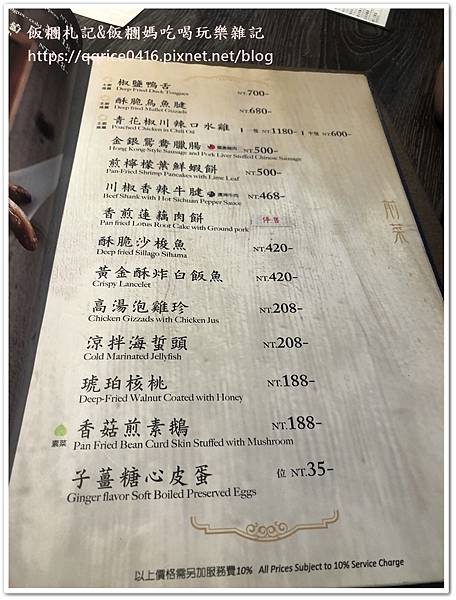 飯糰札記&飯糰媽吃喝玩樂雜記
https://qqrice0416.pixnet.net/blog
椒鹽鴨舌 NT.700-
Deep Fried Duck Tongues
酥脆烏魚腱 NT.680-
Deep fried Mullet Gizzards
青花椒川辣口水雞 一隻 NT.1180- 半隻 NT.600-
Poached Chicken in Chili Oil
金銀鴛鴦臘腸 NT.500-
Hong Kong-Style Sausage and Pork Liver Stuffed Chinese Sausage
煎檸檬葉鮮蝦餅 NT.500-
Pan-Fried Shrimp Pancakes with Lime Leaf
川椒香辣牛腱 NT.468-
Beef Shank with Hot Sichuan Pepper Sauce
香煎蓮藕肉餅 停售
Pan fried Lotus Root Cake with Ground pork
酥脆沙梭魚 NT.420-
Deep fried Sillago Sihama
黃金酥炸白飯魚 NT.420-
Crispy Lancelet
高湯泡雞珍 NT.208-
Chicken Gizzads with Chicken Jus
涼拌海蜇頭 NT.208-
Cold Marinated Jellyfish
琥珀核桃 NT.188-
Deep-Fried Walnut Coated with Honey
香菇煎素鵝 NT.188-
素菜 Pan Fried Bean Curd Skin Stuffed with Mushroom
子薑糖心皮蛋 位 NT.35-
Ginger flavor Soft Boiled Preserved Eggs
前菜
以上價格需另加服務費10% All Prices Subject to 10% Service Charge